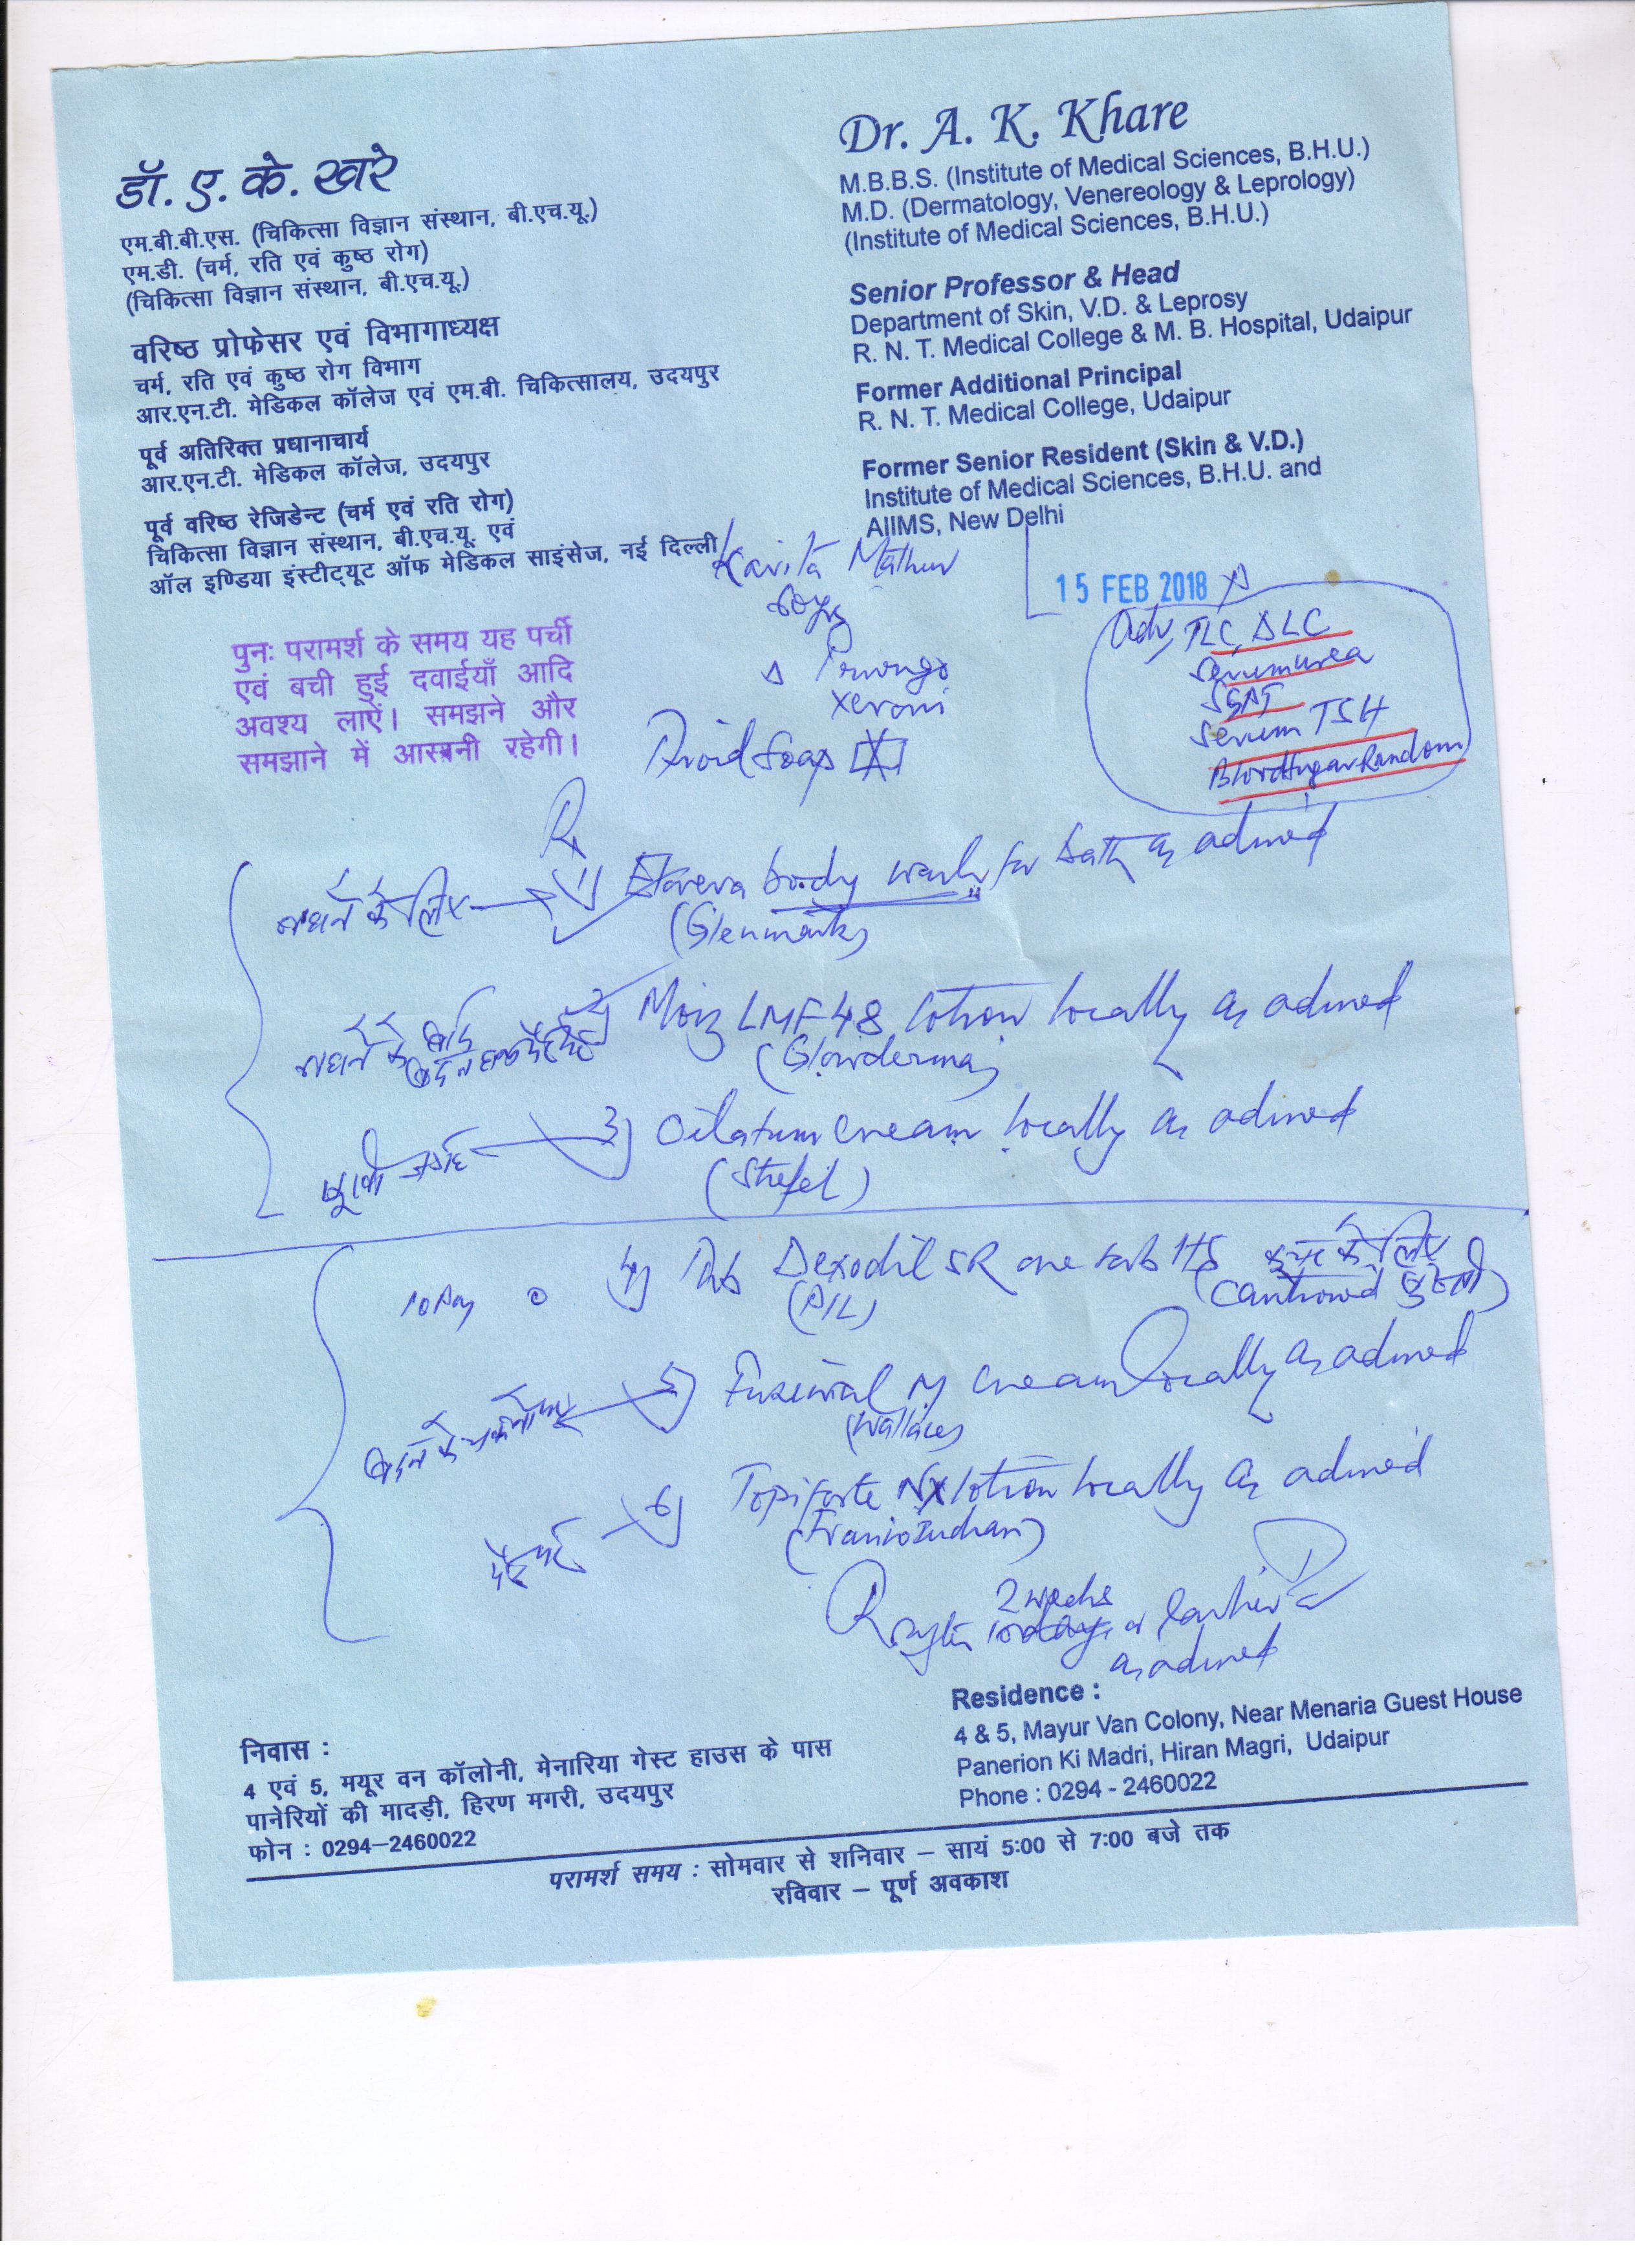 डॉ. ए. के. खरे
एम.बी.बी.एस. (चिकित्सा विज्ञान संस्थान, बी.एच.यू.)
एम.डी. (चर्म, रति एवं कुष्ठ रोग)
(चिकित्सा विज्ञान संस्थान, बी.एच.यू.)
वरिष्ठ प्रोफेसर एवं विभागाध्यक्ष
चर्म, रति एवं कुष्ठ रोग विभाग
आर.एन.टी. मेडिकल कॉलेज एवं एम.बी. चिकित्सालय, उदयपुर
पूर्व अतिरिक्त प्रधानाचार्य
आर.एन.टी. मेडिकल कॉलेज, उदयपुर
पूर्व वरिष्ठ रेजिडेन्ट (चर्म एवं रति रोग)
चिकित्सा विज्ञान संस्थान, बी.एच.यू. एवं
ऑल इण्डिया इंस्टीट्यूट ऑफ मेडिकल साइंसेज, नई दिल्ली
Dr. A. K. Khare
M.B.B.S. (Institute of Medical Sciences, B.H.U.)
M.D. (Dermatology, Venereology & Leprology)
(Institute of Medical Sciences, B.H.U.)
Senior Professor & Head
Department of Skin, V.D. & Leprosy
R. N. T. Medical College & M. B. Hospital, Udaipur
Former Additional Principal
R. N. T. Medical College, Udaipur
Former Senior Resident (Skin & V.D.)
Institute of Medical Sciences, B.H.U. and
AIIMS, New Delhi
Kavita Mathur
15 FEB 2018
पुनः परामर्श के समय यह पर्ची
एवं बची हुई दवाईयाँ आदि
अवश्य लाऐं। समझने और
समझाने में आसानी रहेगी।
Adv, TLC, DLC
Serum urea
Serum TSH
Blood Sugar Random
Avoid Soap
Rx
1) body wash for bath as advised
(Glenmark)
नहाने के लिए
2) Moiz LMF 48 lotion locally as advised
(Glowderma)
नहाने के बाद
3) Oilatum cream locally as advised
(Stiefel)
10 Day
4) Tab Dexodil SR one tab HS
5) cream locally as advised
(Wallace)
6) Topiforte lotion locally as advised
(Franco Indian)
2 weeks
as advised
Residence :
4 & 5, Mayur Van Colony, Near Menaria Guest House
Panerion Ki Madri, Hiran Magri, Udaipur
Phone : 0294 - 2460022
निवास :
4 एवं 5, मयूर वन कॉलोनी, मेनारिया गेस्ट हाउस के पास
पानेरियों की मादड़ी, हिरण मगरी, उदयपुर
फोन : 0294–2460022
परामर्श समय : सोमवार से शनिवार – सायं 5:00 से 7:00 बजे तक
रविवार – पूर्ण अवकाश